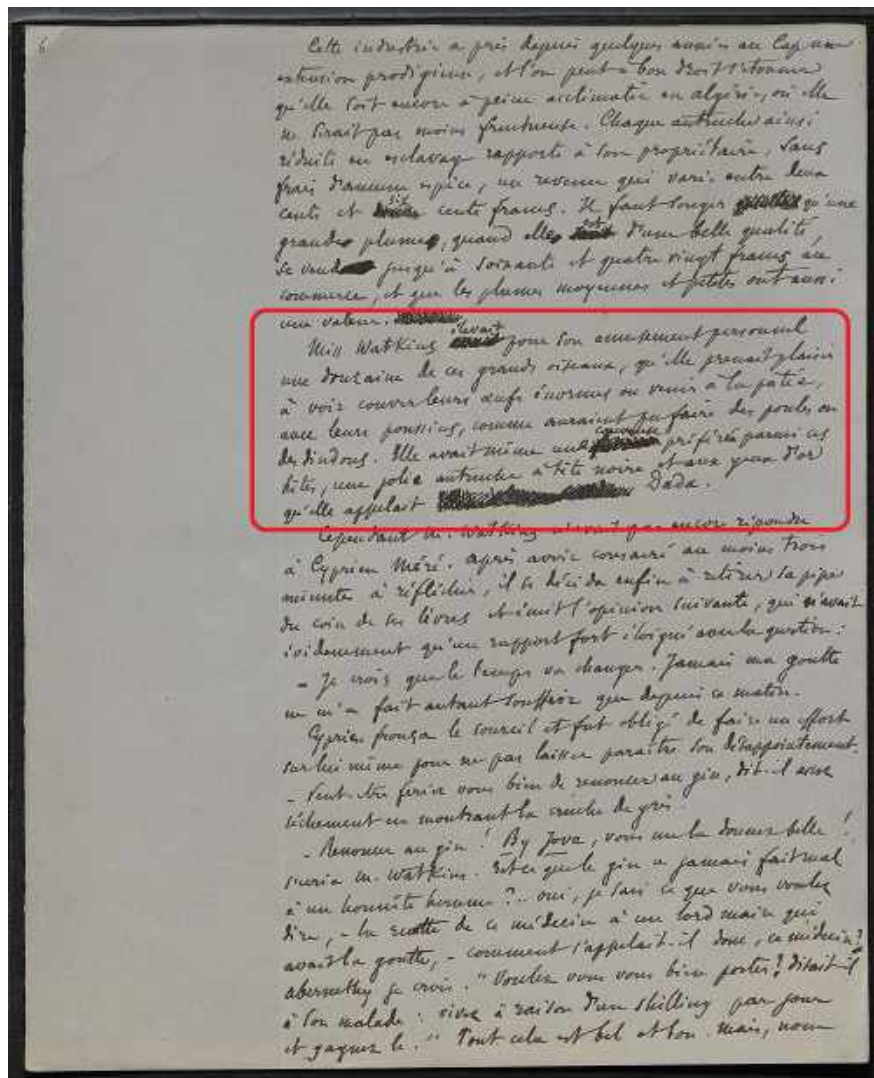 6
Cette industrie a pris depuis quelques années au Cap une
extension prodigieuse, et l'on peut à bon droit s'étonner
qu'elle soit encore à peine acclimatée en algérie, où elle
ne serait pas moins fructueuse. Chaque autruche ainsi
réduite en esclavage rapporte à son propriétaire, sans
frais d'aucune espèce, un revenu qui varie entre deux
cents et six cents francs. Il faut songer qu'une
grande plume, quand elle est d'une belle qualité,
se vend jusqu'à soixante et quatre vingt francs au
commerce, et que les plumes moyennes et petites ont aussi
une valeur.
Miss Watkins élevait pour son amusement personnel
une douzaine de ces grands oiseaux, qu'elle prenait plaisir
à voir couver leurs œufs énormes ou venir à la pâtée,
avec leurs poussins, comme auraient pu faire des poules ou
des dindons. Elle avait même une préférée parmi ces
bêtes, une jolie autruche à tête noire et aux yeux d'or
qu'elle appelait Dada.
Cependant M. Watkins n'avait pas encore répondu
à Cyprien Méré. après avoir consacré au moins trois
minutes à réfléchir, il se décida enfin à retirer sa pipe
du coin de ses lèvres et émit l'opinion suivante, qui n'avait
évidemment qu'un rapport fort éloigné avec la question :
- Je crois que le temps va changer. Jamais ma goutte
ne m'a fait autant souffrir que depuis ce matin.
Cyprien fronça le sourcil et fut obligé de faire un effort
sur lui même pour ne pas laisser paraître son désappointement.
- Peut-être feriez vous bien de renoncer au gin, dit-il assez
sèchement en montrant la cruche de grès.
- Renoncer au gin ! By Jove, vous me la donnez belle !
s'écria M. Watkins. Est ce que le gin a jamais fait mal
à un honnête homme ?.. oui, je sais ce que vous voulez
dire, - la recette de ce médecin à un lord maire qui
avait la goutte, - comment s'appelait-il donc, ce médecin ?
abernethy je crois. "Voulez vous vous bien porter ? disait-il
à son malade : vivez à raison d'un shilling par jour
et gagnez le." Tout cela est bel et bon. mais, nom